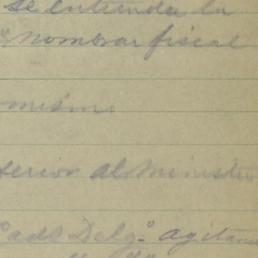 se entienda la
nombrar fiscal
mismo
terior al Ministro
cado Delg.º agitan